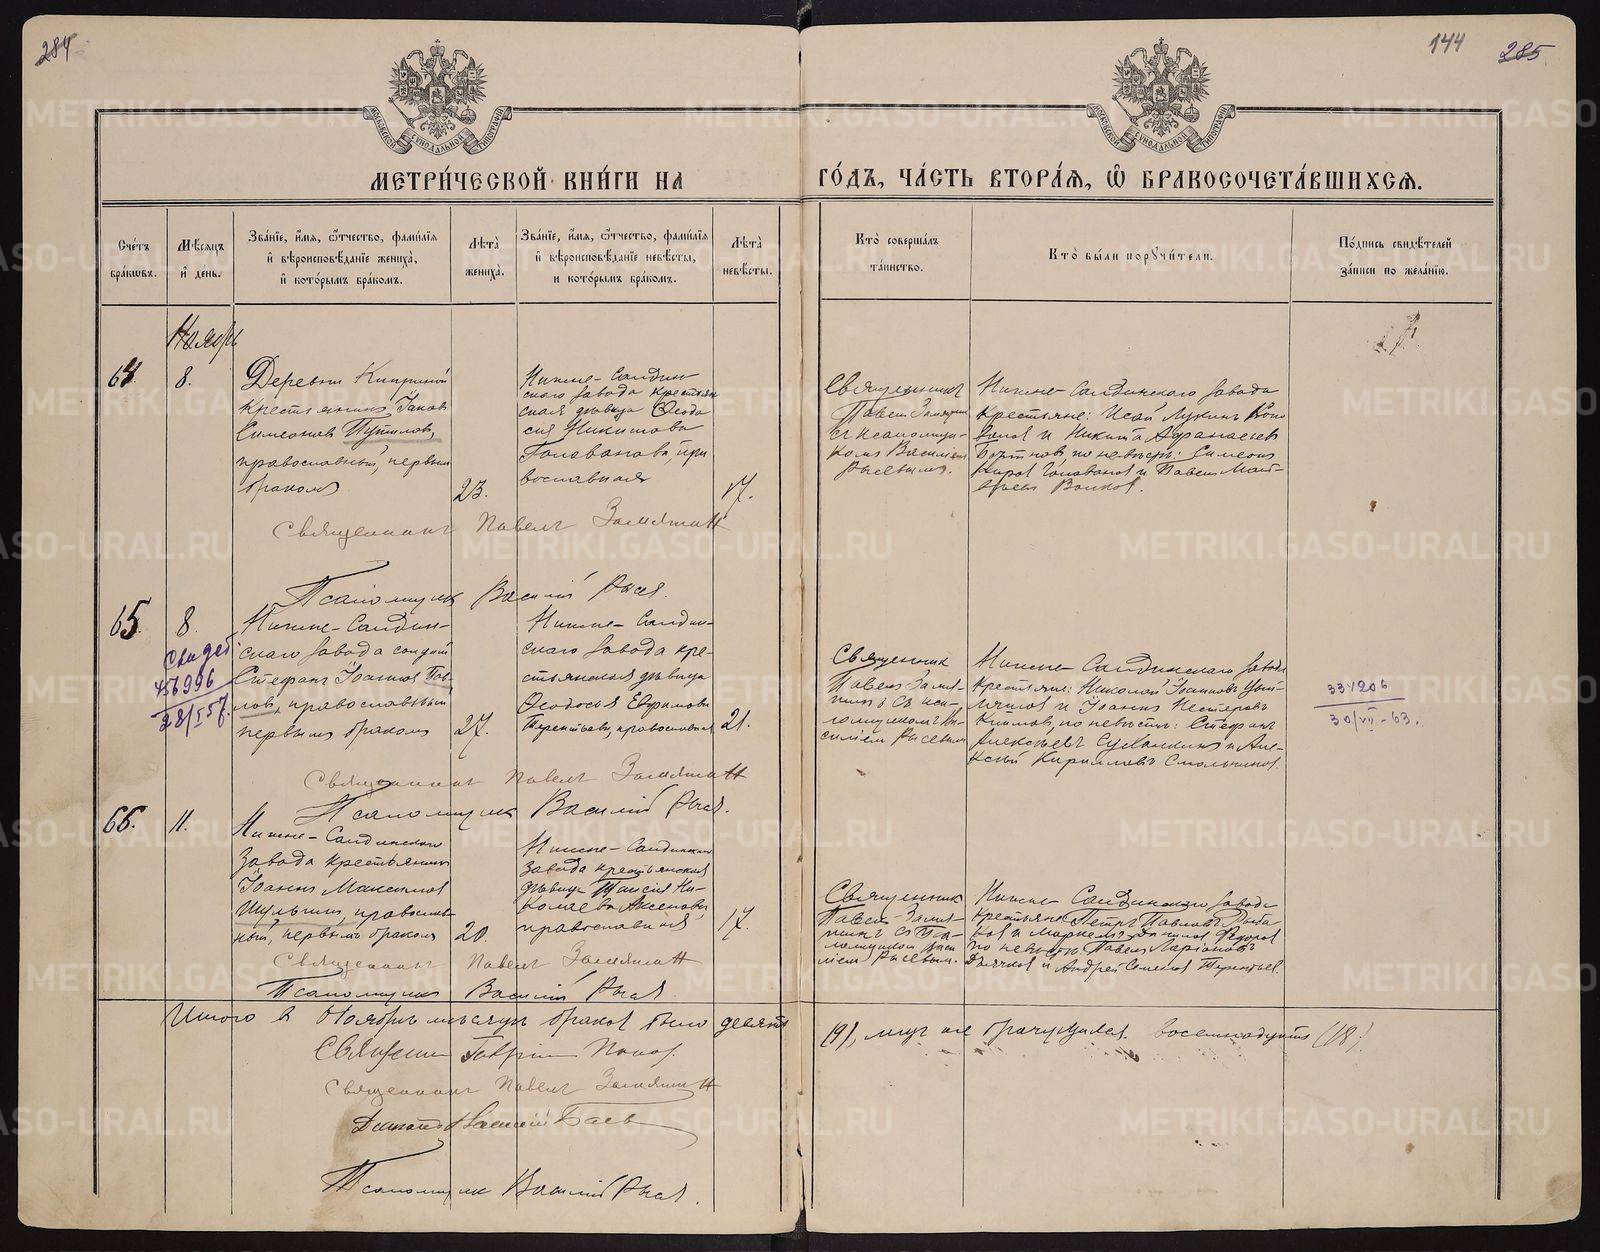 284
144 285
МОСКОВСКОЙ СѴНОДАЛЬНОЙ ТИПОГРАФІИ
МОСКОВСКОЙ СѴНОДАЛЬНОЙ ТИПОГРАФІИ
МЕТРИ́ЧЕСКОЙ КНИ́ГИ НА ГО́ДЪ, ЧА́СТЬ ВТОРА́Я, Ѡ БРАКОСОЧЕТА́ВШИХСЯ.
Сче́тъ бра́кѡвъ.
Мѣ́сяцъ и҆ де́нь.
Зва́нїе, и҆́мя, ѻ҆́тчество, фами́лїя и҆ вѣроисповѣ́данїе жениха̀, и҆ кото́рымъ бра́комъ.
Лѣ́та жениха̀.
Зва́нїе, и҆́мя, ѻ҆́тчество, фами́лїя и҆ вѣроисповѣ́данїе невѣ́сты, и кото́рымъ бра́комъ.
Лѣ́та невѣ́сты.
Кто̀ соверша́лъ та́инство.
Кто̀ бы́ли порꙋчи́тели.
По́дпись свидѣ́телей за́писи по жела́нїю.
Ноябрь
64. 8.
Деревни Киприной
крестьянинъ Іаковъ
Симеоновъ Путиловъ,
православный, первым
бракомъ
23.
Нижне-Салдин
скаго завода крестьян
ская дѣвица Ѳеодо
сія Никитова
Голованова, пра
вославная
17.
Священникъ
Павелъ Замятин
съ псаломщи-
комъ Василіем
Рысевымъ.
Нижне-Салдинскаго завода
крестьяне: Исай Лукинъ
и Никита Афанасьев
по невѣстѣ: Симеонъ
Голованов и Павелъ Мат-
вѣевъ Волков.
Священникъ Павелъ Замятинъ
Псаломщик Василій Рысев
65. 8.
Свидет
456996
28/I 57г.
Нижне-Салдин-
скаго завода солдат
Стефанъ Іоанновъ Пав-
лов, православный
первымъ бракомъ
27.
Нижне-Салдин-
скаго завода кре-
стьянская дѣвица
Ѳеодосья Ефимова
Терентьева, православная
21.
Священник
Павелъ Замят-
инъ съ пса-
ломщикомъ Ва-
силіем Рысевым
Нижне-Салдинскаго завода
крестьяне: Николай Іоанновъ
и Іоаннъ Нестеровъ
Климовъ, по невѣстѣ: Стефанъ
Алексѣевъ и Але-
ксѣй Кирилловъ Смольников.
331206
30/VII-63.
Священникъ Павелъ Замятинъ
Псаломщик Василій Рысев.
66. 11.
Нижне-Салдинскаго
завода крестьянинъ
Іоаннъ Максимов
Шульгин, православ-
ный, первымъ бракомъ
20.
Нижне-Салдинскаго
завода крестьянская
дѣвица Таисія Ни-
колаева Аксенова,
православная
17.
Священник
Павелъ Замят-
инъ с Пса-
ломщиком Васи
ліем Рысевым.
Нижне-Салдинскаго завода
крестьяне Петръ Павловъ
и Маркелъ Данилов Ѳедоров
по невѣстѣ: Павелъ Ларіоновъ
Дьячков и Андрей Семенов Терентьев.
Священникъ Павелъ Замятинъ
Псаломщикъ Василій Рысев
Итого в Ноябрѣ мѣсяцѣ браков было девять (9), лиц же брачущихся восемнадцать (18).
Священник Гавріил Попов.
Священникъ Павелъ Замятинъ
Псаломщик Василій Рысев.
METRIKI.GASO-URAL.RU